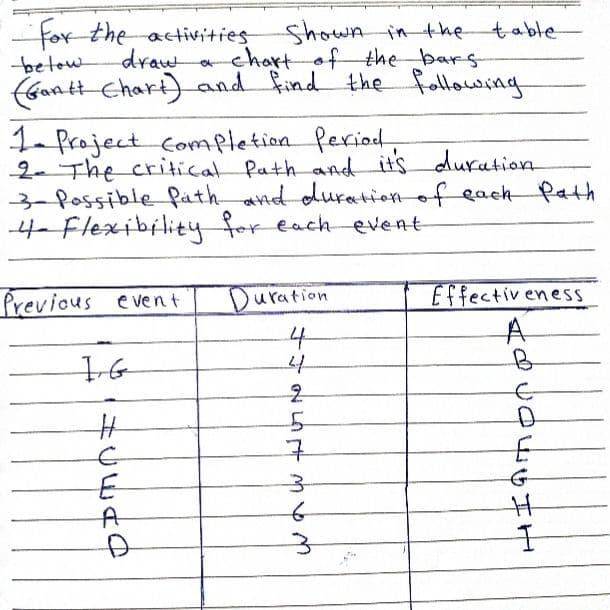 For the activities shown in the table
below draw a chart of the bars
(Gantt Chart) and find the following
1- Project Completion Period
2- The critical Path and it's duration
3- Possible Path and duration of each Path
4- Flexibility for each event
Previous event Duration Effectiveness
- 4 A
I,G 4 B
- 2 C
H 5 D
C 7 E
E 3 G
A 6 H
D 3 I